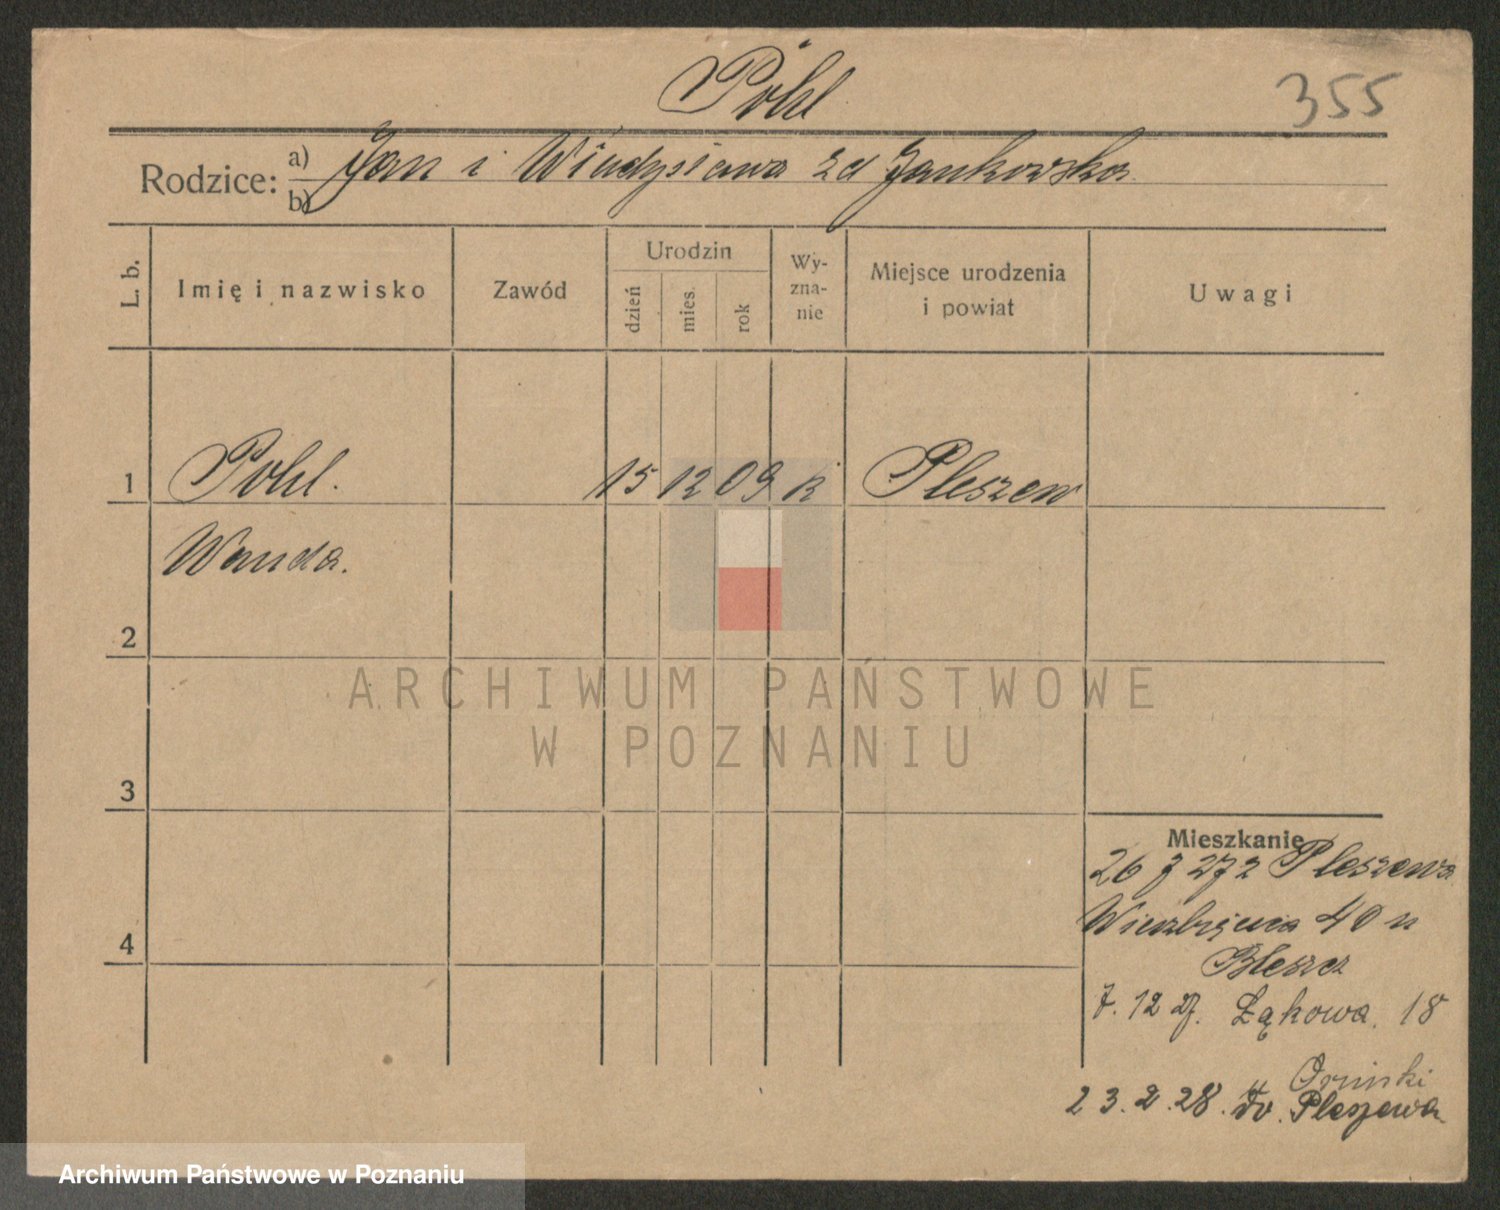 Pohl
355
Rodzice: a) Jan i Władysława zd Jankowska
b)
L. b.
Imię i nazwisko
Zawód
Urodzin
dzień
mies.
rok
Wy-
zna-
nie
Miejsce urodzenia
i powiat
Uwagi
1 Pohl. 15 12 09 k Pleszew
Wanda.
2
ARCHIWUM PAŃSTWOWE
W POZNANIU
3
Mieszkanie
26 7 27 z Pleszewa
40 u
4
7. 12 27. Łąkowa. 18
23. 2. 28. do. Pleszewa
Archiwum Państwowe w Poznaniu